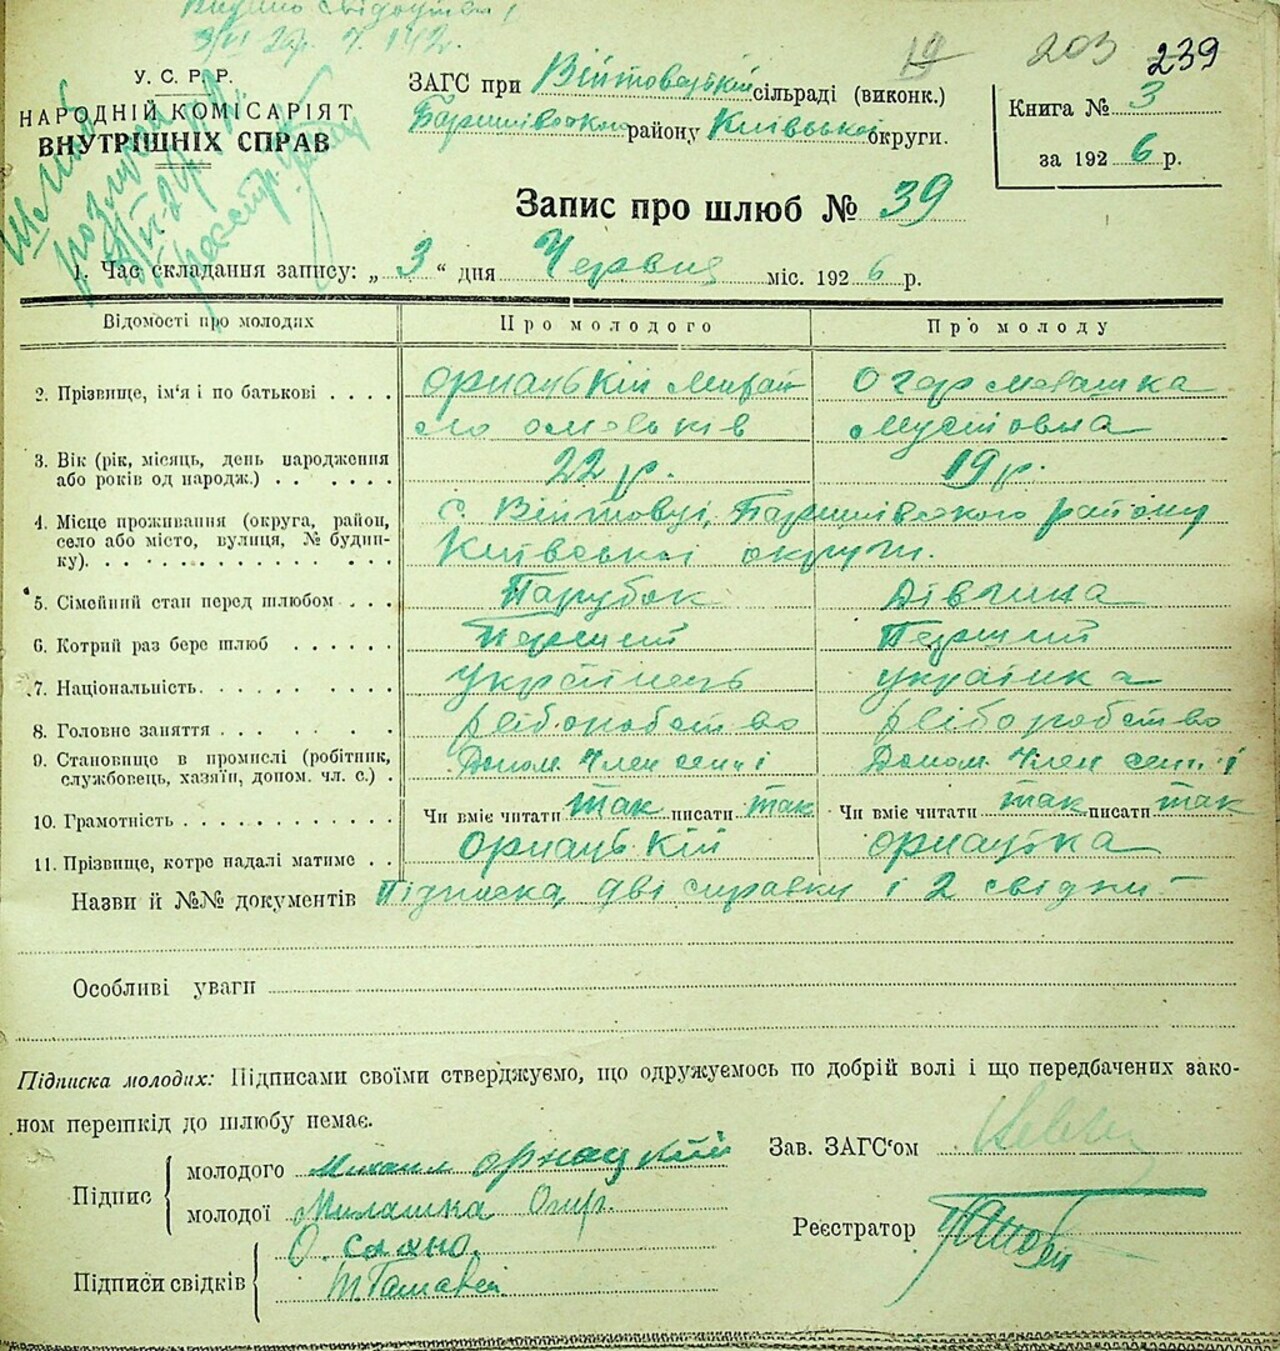 Видано свідоцтво
У. С. Р. Р.
НАРОДНІЙ КОМІСАРІЯТ
ВНУТРІШНІХ СПРАВ
ЗАГС при Війтовецькій сільраді (виконк.)
Баришівського району Київської округи.
19 203 239
Книга № 3
за 1926 р.
Запис про шлюб № 39
1. Час складання запису: „3“ дня Червня міс. 1926 р.
Відомості про молодих Про молодого Про молоду
2. Прізвище, ім'я і по батькові . . . . Орнацькій Михай Огер Мелашка
ло Омельків Мусіовна
3. Вік (рік, місяць, день народження
або років од народж.) . . . . . . 22 р. 19 р.
4. Місце проживання (округа, район, с. Війтовці, Баришівського району
село або місто, вулиця, № будин- Київської округи.
ку). . . . . . . . . . . .
5. Сімейний стан перед шлюбом . . . Парубок Дівчина
6. Котрий раз бере шлюб . . . . . . Перший Перший
7. Національність. . . . . . . . . . Українець українка
8. Головне заняття . . . . . . . . . хліборобство хліборобство
9. Становище в промислі (робітник,
службовець, хазяїн, допом. чл. с.) . Допом. Член семї Допом. Член семї
10. Грамотність . . . . . . . . . . . Чи вміє читати так писати так Чи вміє читати так писати так
11. Прізвище, котре надалі матиме . . Орнацькій Орнацька
Назви й №№ документів Підписка, дві справки і 2 свідки
Особливі уваги
Підписка молодих: Підписами своїми стверджуємо, що одружуємось по добрій волі і що передбачених зако-
ном перешкід до шлюбу немає.
Підпис
молодого Михаил Орнацкий
молодої Милашка Огир.
Зав. ЗАГС'ом
Реєстратор
Підписи свідків
О. Сахно.